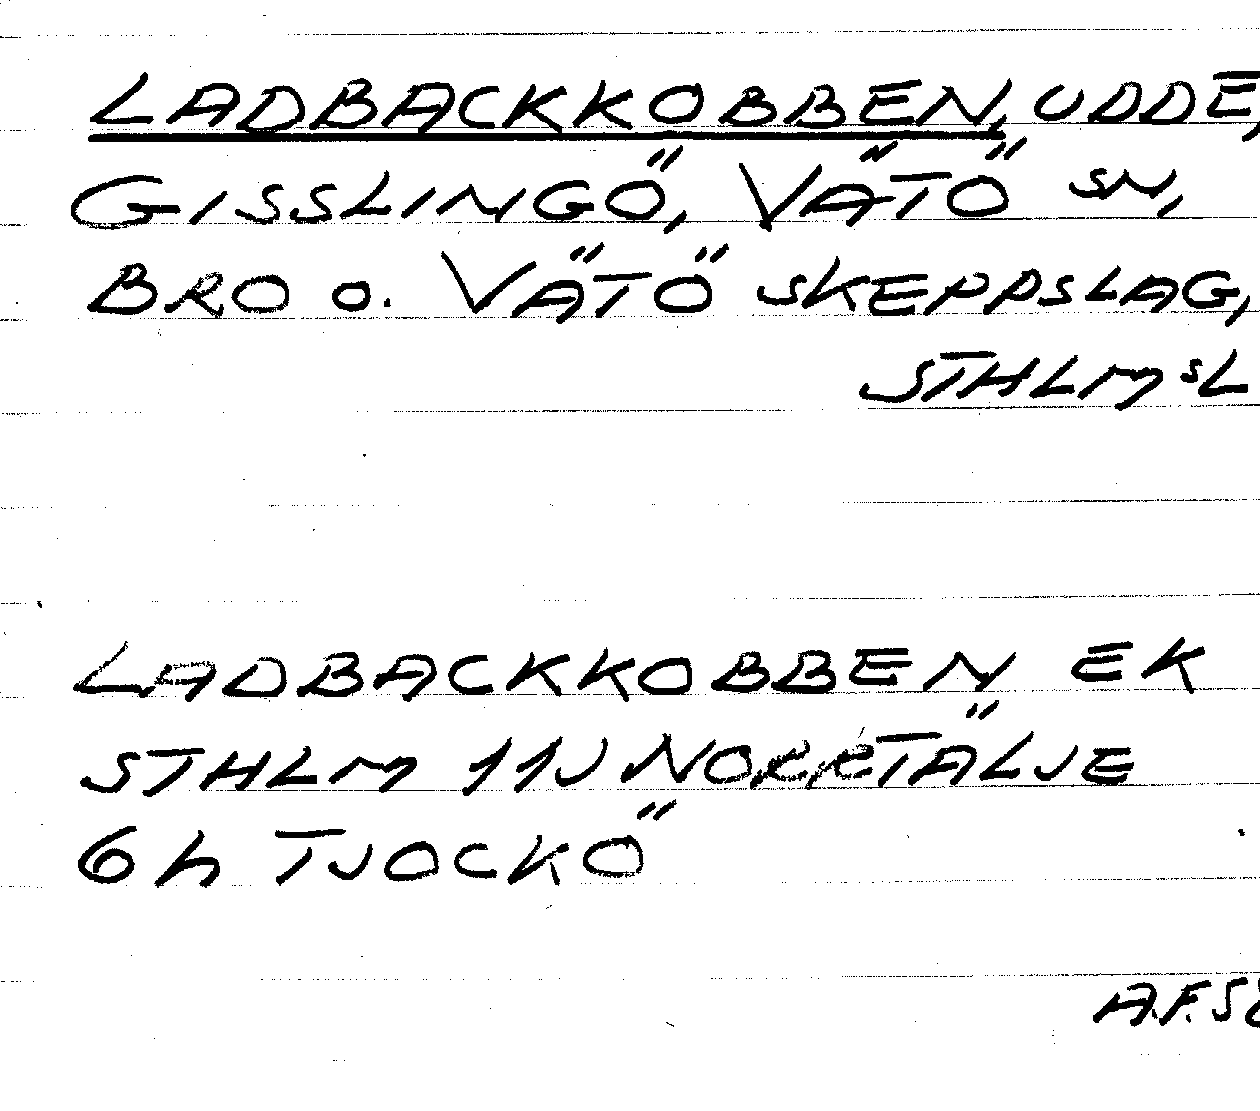 LADBACKKOBBEN, UDDE,
GISSLINGÖ, VÄTÖ SN,
BRO O. VÄTÖ SKEPPSLAG,
STHLMSL
LADBACKKOBBEN EK
STHLM 11J NORRTÄLJE
6h TJOCKÖ
A.F.